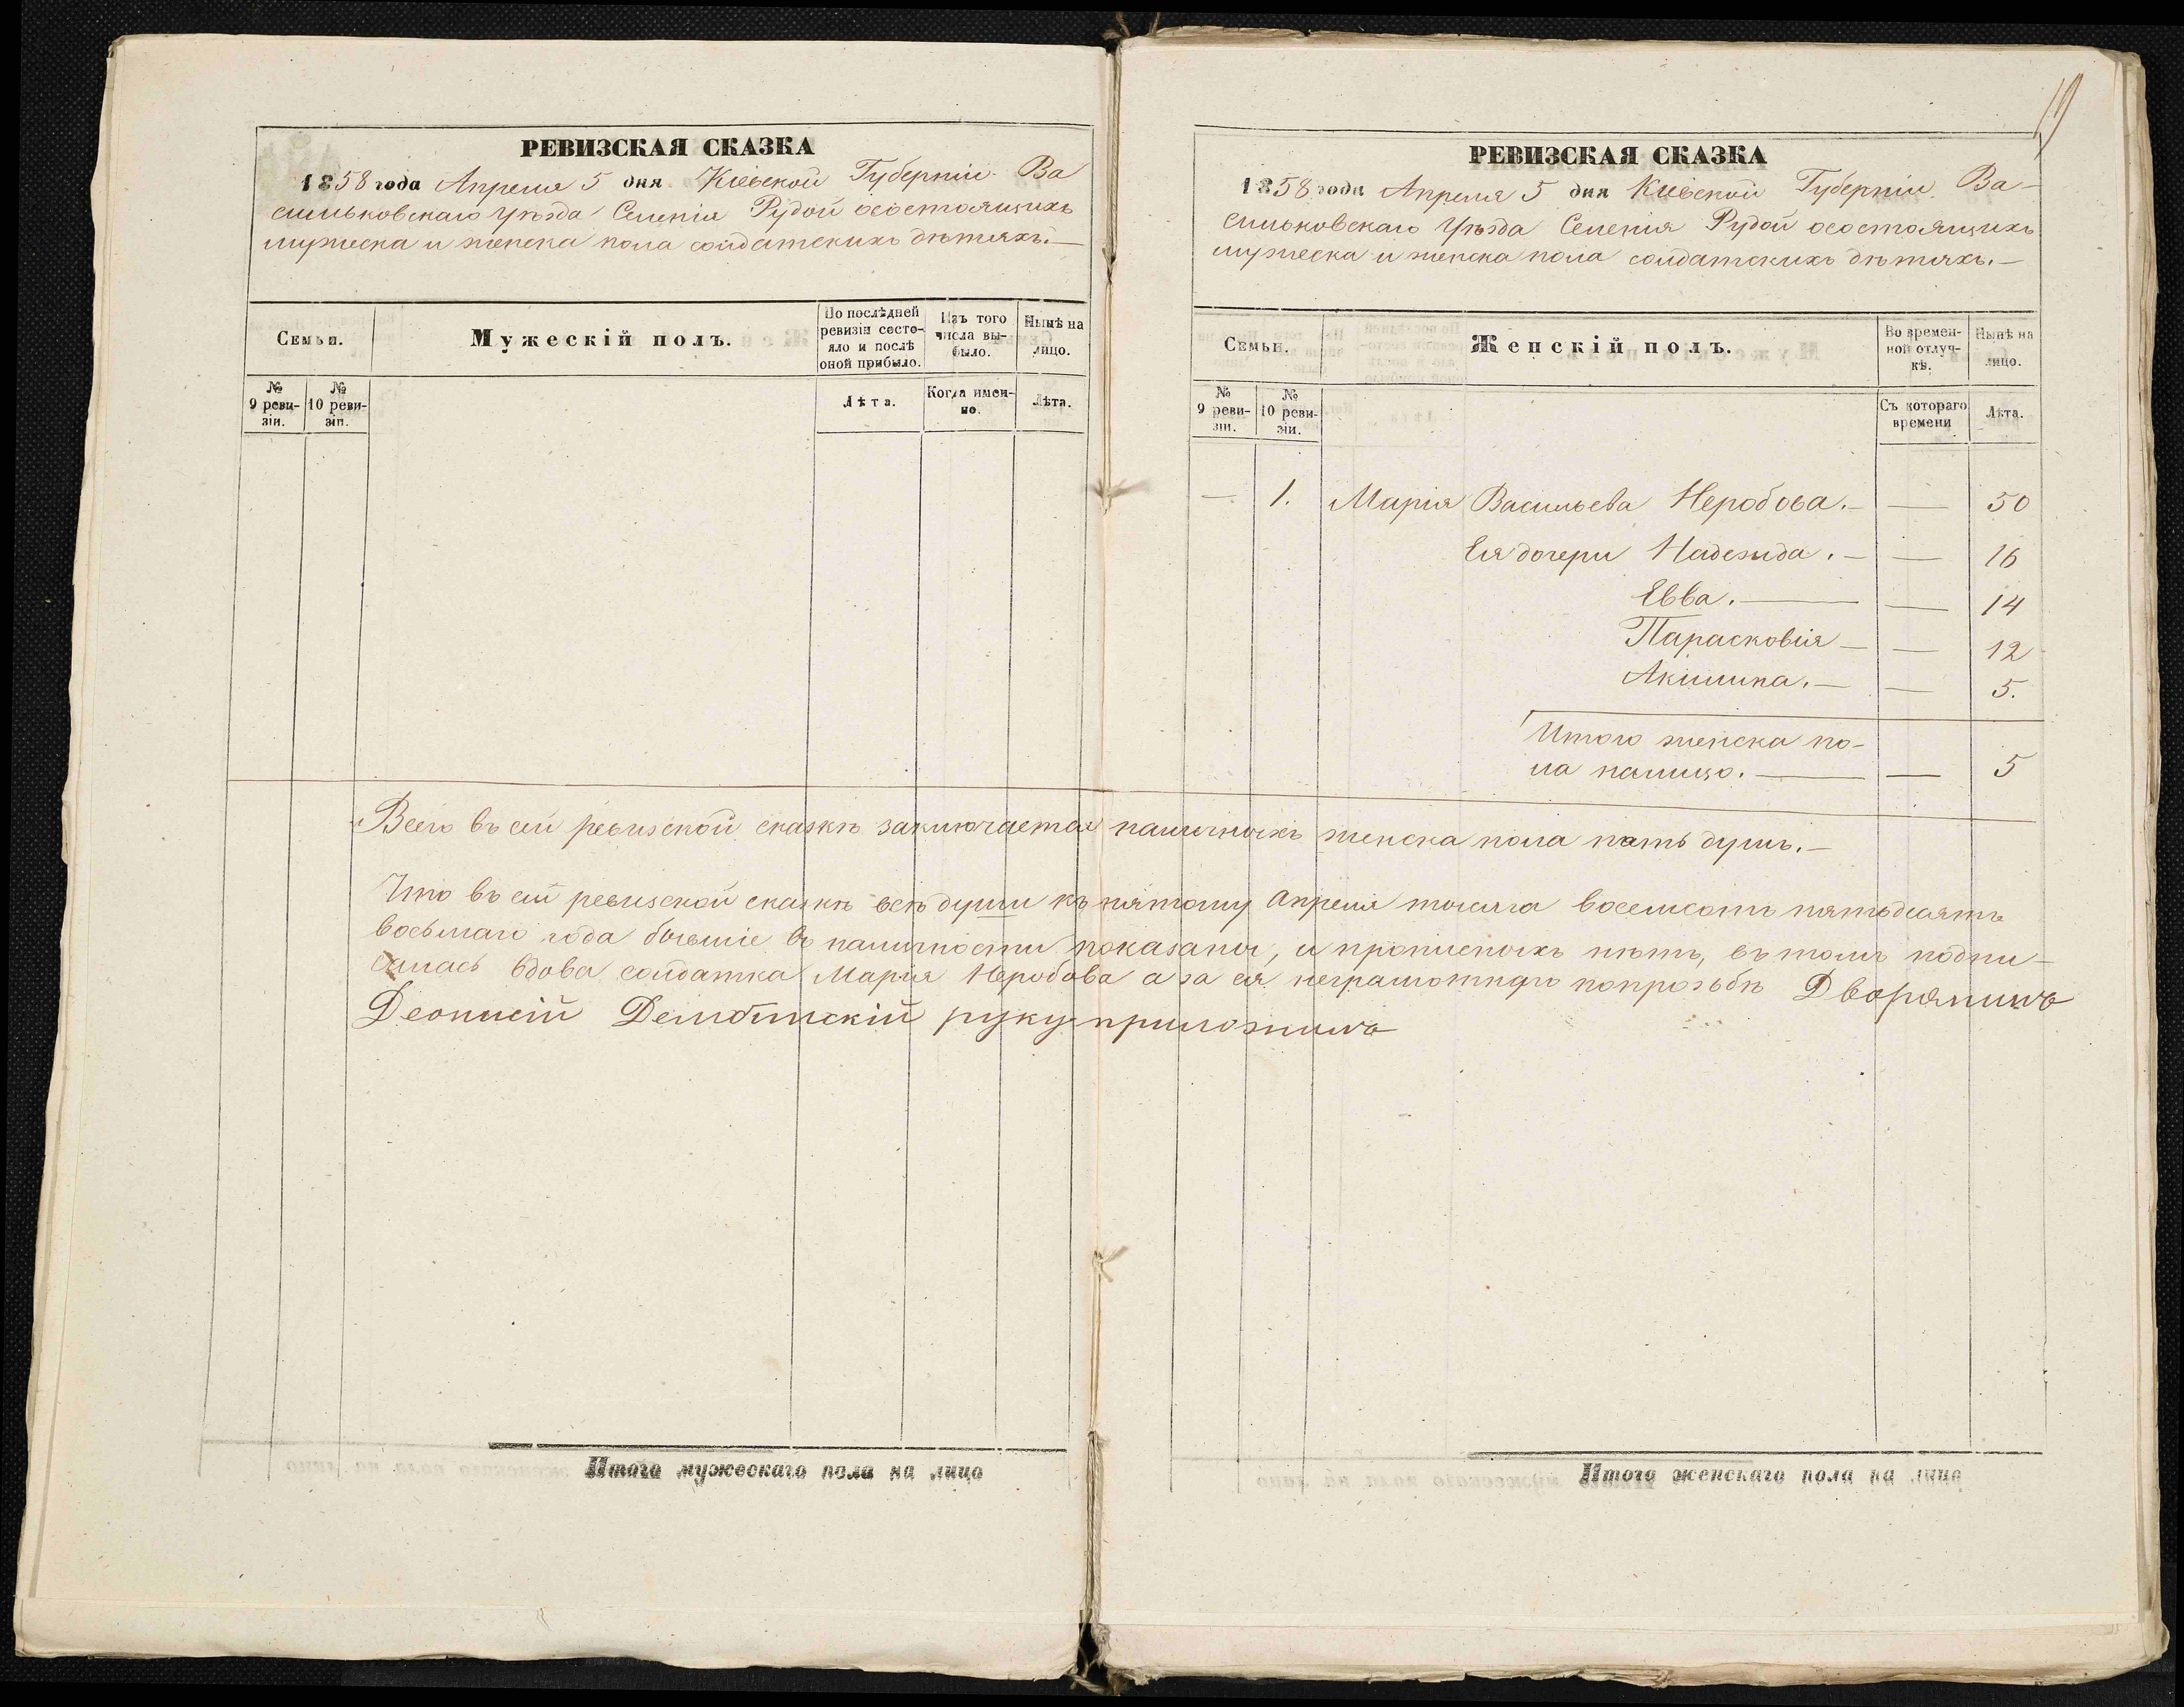 РЕВИЗСКАЯ СКАЗКА
1858 года Апреля 5 дня Кіевской Губерніи Ва
сильковскаго Уѣзда Селенія Рудой осостоящихъ
мужеска и женска пола солдатскихъ дѣтяхъ.—
Семьи.
Мужескій полъ.
По послѣдней ревизіи состояло и послѣ оной прибыло.
Изъ того числа выбыло.
Нынѣ на лицо.
№ 9 ревизіи.
№ 10 ревизіи.
Лѣта.
Когда именно.
Лѣта.
19
РЕВИЗСКАЯ СКАЗКА
1858 года Апреля 5 дня Кіевской Губерніи Ва-
сильковскаго Уѣзда Селенія Рудой осостоящихъ
мужеска и женска пола солдатскихъ дѣтяхъ.—
Семьи.
Женскій полъ.
Во временной отлучкѣ.
Нынѣ на лицо.
№ 9 ревизіи.
№ 10 ревизіи.
Съ котораго времени
Лѣта.
— 1. Марія Васильева Неробова.— — 50
Ея дочери Надежда.— — 16
Евва.— — 14
Парасковія — — 12
Акилина.— — 5.
Итого женска по-
ла налицо.— — 5
Всего въ сей ревизской сказкѣ заключается наличныхъ женска пола пять душъ.—
Что въ сей ревизской сказкѣ всѣ души къ пятому Апреля тысяча восемсотъ пятьдесятъ
восьмаго года бывшіе въ наличности показаны, и прописныхъ нѣтъ, въ томъ подпи-
салась вдова солдатка Марія Неробова а за ея неграмотную попрозьбѣ Дворянинъ
Деонисій Дембицкій руку приложилъ
Итого мужескаго пола на лицо
Итого женскаго пола на лицо